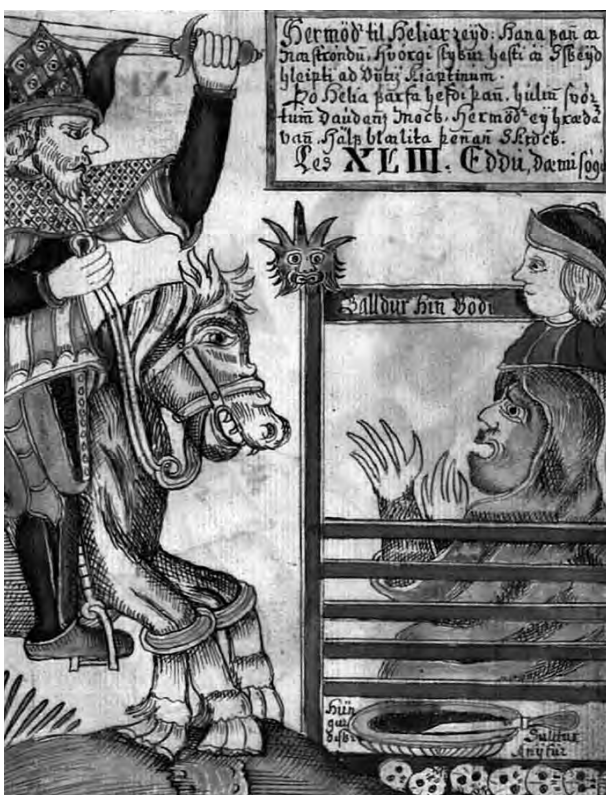 Hermöd' til Heliar reÿd: Hana þañ á
Nástrondũ. Hvórgi stÿbur hesti á Ísbeÿd
hleipti ad Vÿtÿ Kiaptinum.
Þo Helia þarfa hefdi þañ. húlin svór-
tum daudans Mock. Hermöd' ey hræda
vañ. Háls blælita þeñan Skrock.
Les XLIII. Eddũ, dæmi sögu
Balldur hin Godi
Hũn
Sulltur